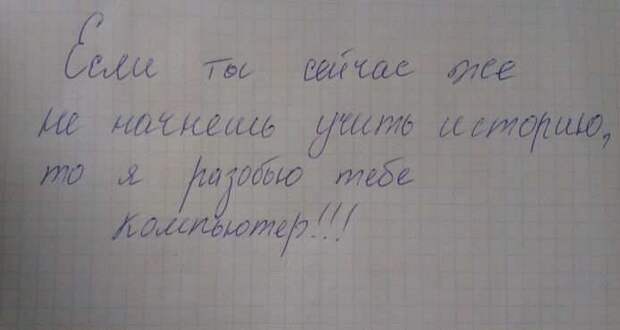 Если ты сейчас же
не начнешь учить историю,
то я разобью тебе
компьютер!!!